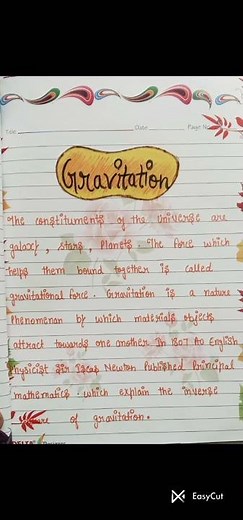 Date
Page No
Gravitation
The constituments of the Universe are
galaxy, stars, Planets. The force which
helps them bound together is called
gravitational force. Gravitation is a nature
Phenomenan by which materials objects
attract towards one another In 1807 An English
Physicist Sir Isaac Newton Published Principal
mathematics. which explain the inverse
of gravitation.
EasyCut